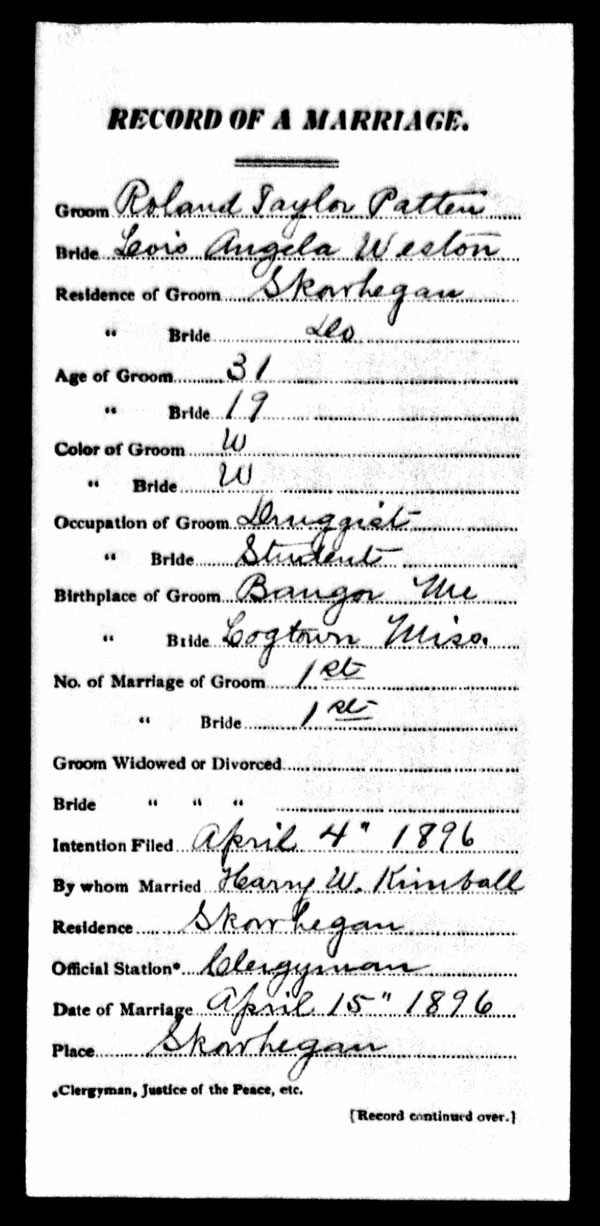 RECORD OF A MARRIAGE.
Groom Roland Taylor Patten
Bride Lois Angela Weston
Residence of Groom Skowhegan
" Bride Do
Age of Groom 31
" Bride 19
Color of Groom W
" Bride W
Occupation of Groom Druggist
" Bride Student
Birthplace of Groom Bangor Me
" Bride Logtown Miss.
No. of Marriage of Groom 1st
" Bride 1st
Groom Widowed or Divorced
Bride " " "
Intention Filed April 4" 1896
By whom Married Harry W. Kimball
Residence Skowhegan
Official Station* Clergyman
Date of Marriage April 15" 1896
Place Skowhegan
*Clergyman, Justice of the Peace, etc.
[Record continued over.]